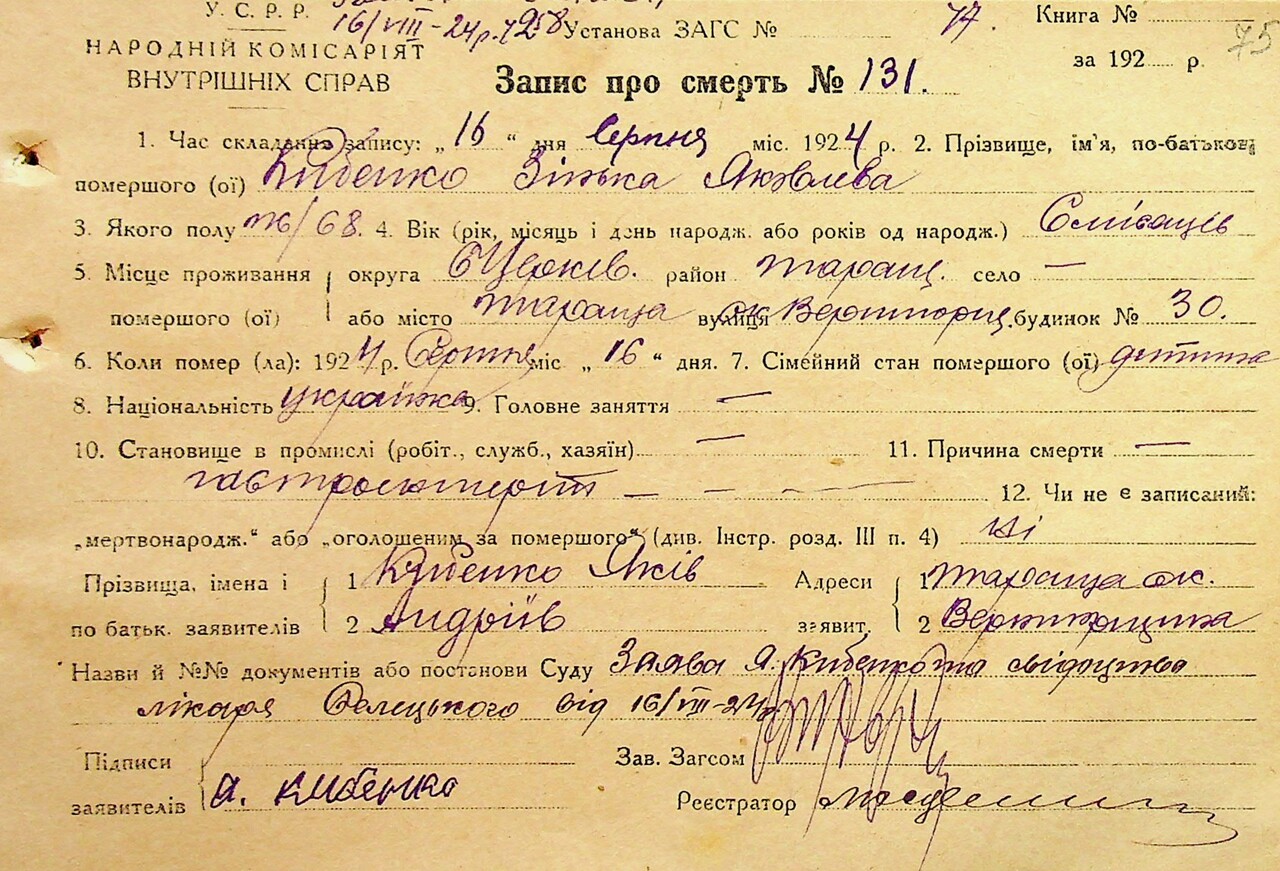 У. С. Р. Р.
16/VIII-24 р. Установа ЗАГС № 77. Книга № 75
НАРОДНІЙ КОМІСАРІЯТ
ВНУТРІШНІХ СПРАВ
за 192 р.
Запис про смерть № 131.
1. Час складання запису: „ 16 “ дня Серпня міс. 1924 р. 2. Прізвище, ім'я, по-батькові
помершого (ої) Кибенко Зінька Яковлева
3. Якого полу ж/68. 4. Вік (рік, місяць і день народж. або років од народж.)
5. Місце проживання округа БЦерків. район Таращ. село —
помершого (ої) або місто Тараща вулиця будинок № 30.
6. Коли помер (ла): 1924 р. Серпня міс „ 16 “ дня. 7. Сімейний стан помершого (ої) дитина
8. Національність українка 9. Головне заняття —
10. Становище в промислі (робіт., служб., хазяїн) — 11. Причина смерти —
гастроентеріт — — — 12. Чи не є записаний:
„мертвонародж.“ або „оголошеним за помершого“ (див. Інстр. розд. III п. 4) ні
Прізвища, імена і 1 Кибенко Яків Адреси 1 Тараща
по батьк. заявителів 2 Андріїв заявит. 2
Назви й №№ документів або постанови Суду Заява Я. Кибенко та свідоцтво
лікаря від 16/VIII-24р
Підписи Зав. Загсом
заявителів Я. Кибенко Реєстратор